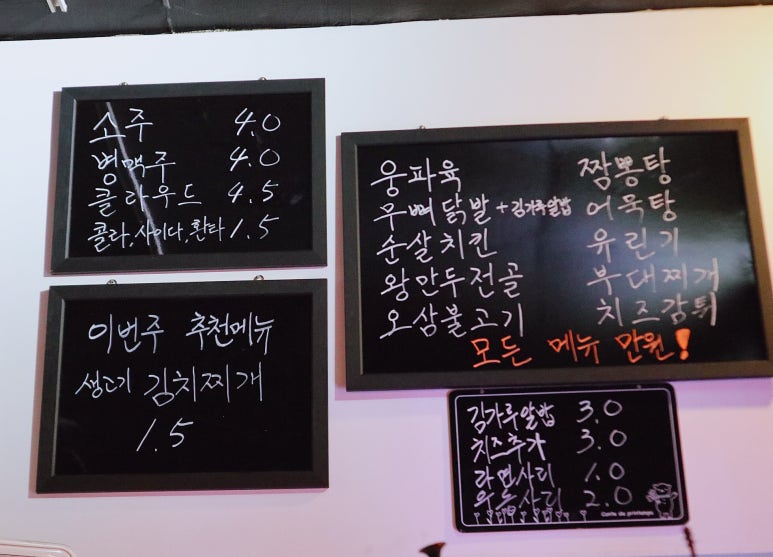 소주 4.0
병맥주 4.0
클라우드 4.5
콜라, 사이다, 환타 1.5
이번주 추천메뉴
생고기 김치찌개
1.5
웅파육 짬뽕탕
무뼈닭발 + 김가루알밥 어묵탕
순살치킨 유린기
왕만두전골 부대찌개
오삼불고기 치즈감튀
모든 메뉴 만원!
김가루알밥 3.0
치즈추가 3.0
라면사리 1.0
우동사리 2.0
Conte de printemps